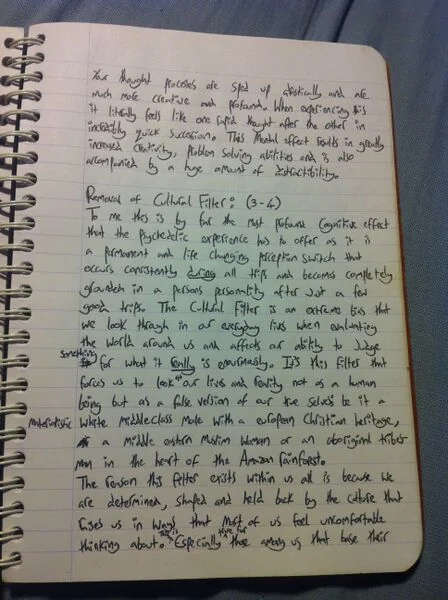 Your thought processes are sped up drastically and are
much more creative and profound. When experiencing this
it literally feels like one rapid thought after the other in
incredibly quick succession. This mental effect results in greatly
increased creativity, problem solving abilities and is also
accompanied by a huge amount of distractibility.
Removal of Cultural Filter: (3-4)
To me this is by far the most profound cognitive effect
that the psychedelic experience has to offer as it is
a permanent and life changing perception switch that
occurs consistently during all trips and becomes completely
grounded in a persons personality after just a few
good trips. The Cultural Filter is an extreme bias that
we look through in our everyday lives when evaluating
the world around us and affects our ability to Judge
something for what it really is enourmously. It's this filter that
forces us to look at our lives and reality not as a human
being but as a false version of our true selves be it a
materialistic white middleclass male with a european Christian heritage,
a middle eastern Muslim woman or an aboriginal tribes
man in the heart of the Amazon rainforest.
The reason this filter exists within us all is because we
are determined, shaped and held back by the culture that
raises us in ways that most of us feel uncomfortable
thinking about. Especially those among us that base their